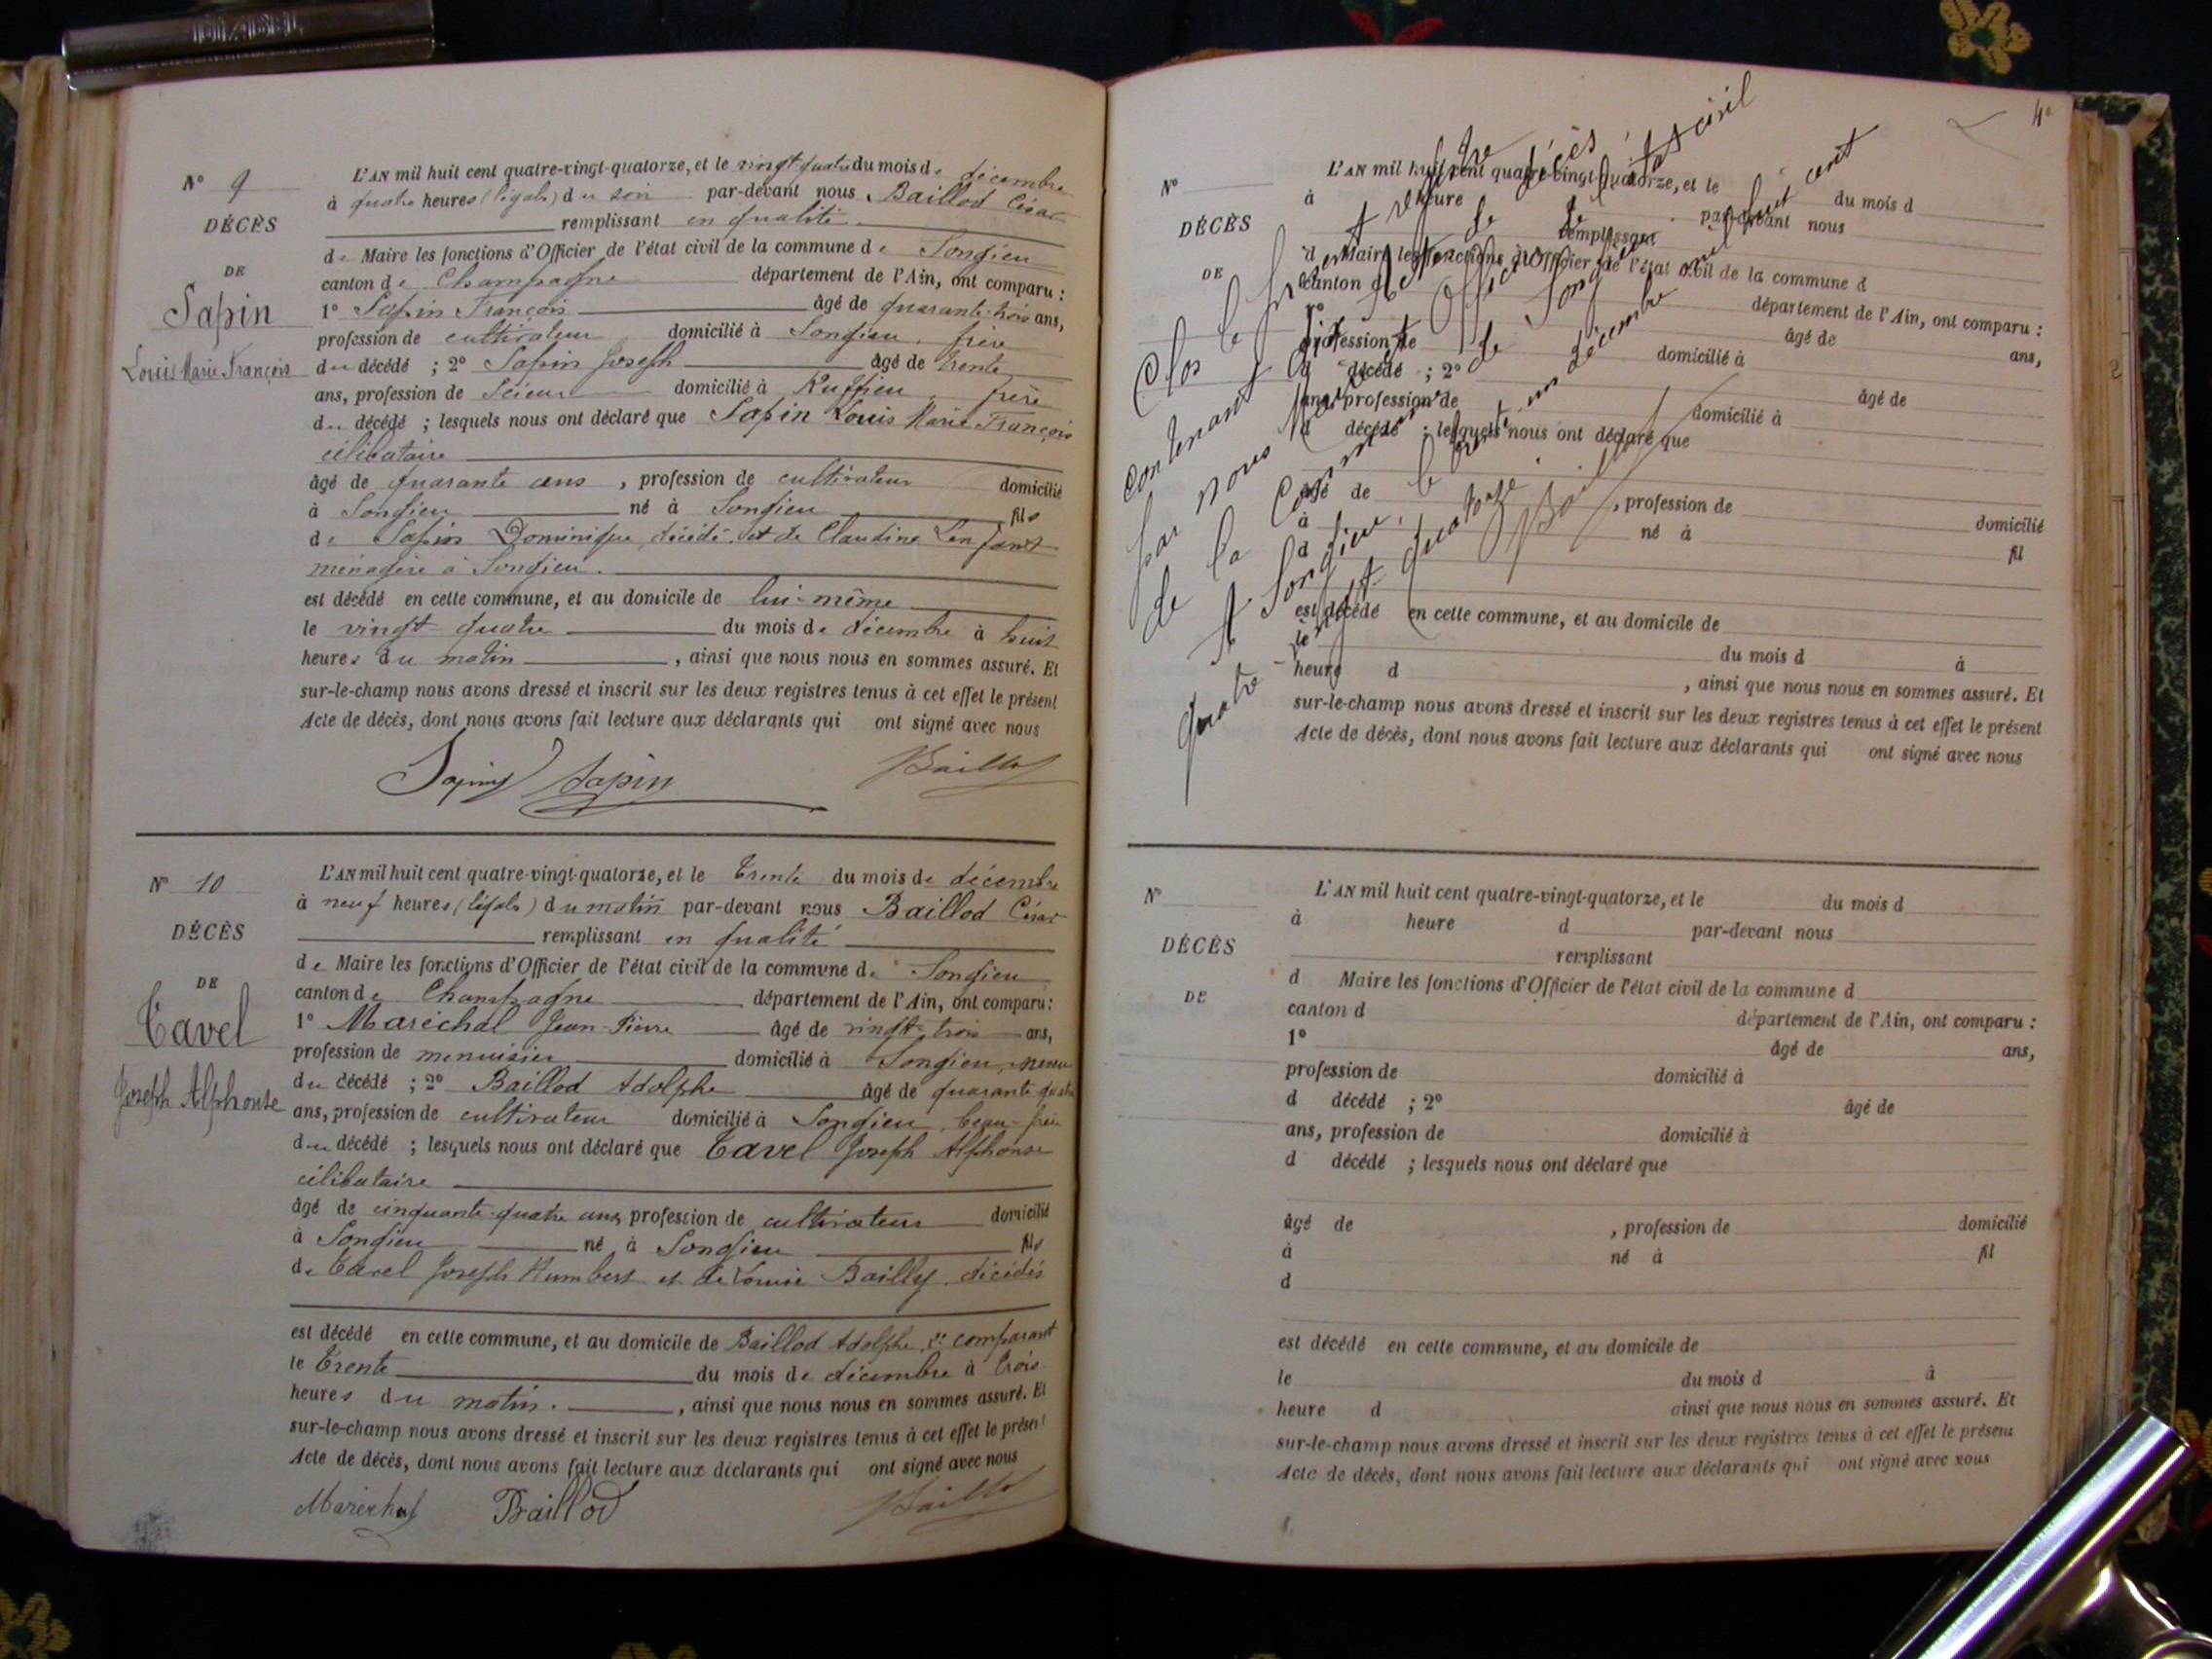 N° 9
DÉCÈS
DE
Sapin
Louis Marie François
L'AN mil huit cent quatre-vingt-quatorze, et le vingt-quatre du mois de décembre
à quatre heures (légales) du soir par-devant nous Baillod César
remplissant en qualité
de Maire les fonctions d'Officier de l'état civil de la commune de Songieu
canton de Champagne département de l'Ain, ont comparu :
1° Sapin François âgé de quarante-trois ans,
profession de cultivateur domicilié à Songieu, frère
du décédé ; 2° Sapin Joseph âgé de trente
ans, profession de Scieur domicilié à Ruffieu, frère
du décédé ; lesquels nous ont déclaré que Sapin Louis Marie François
célibataire
âgé de quarante ans, profession de cultivateur domicilié
à Songieu né à Songieu fils
de Sapin Dominique, décédé et de Claudine
ménagère à Songieu.
est décédé en cette commune, et au domicile de lui-même
le vingt quatre du mois de décembre à huit
heures du matin, ainsi que nous nous en sommes assuré. Et
sur-le-champ nous avons dressé et inscrit sur les deux registres tenus à cet effet le présent
Acte de décès, dont nous avons fait lecture aux déclarants qui ont signé avec nous
Sapin Sapin Baillod
N° 10
DÉCÈS
DE
Tavel
Joseph Alphonse
L'AN mil huit cent quatre-vingt-quatorze, et le trente du mois de décembre
à neuf heures (légales) du matin par-devant nous Baillod César
remplissant en qualité
de Maire les fonctions d'Officier de l'état civil de la commune de Songieu
canton de Champagne département de l'Ain, ont comparu :
1° Maréchal Jean-Pierre âgé de vingt-trois ans,
profession de menuisier domicilié à Songieu, neveu
du décédé ; 2° Baillod Adolphe âgé de quarante quatre
ans, profession de cultivateur domicilié à Songieu, beau-frère
du décédé ; lesquels nous ont déclaré que Tavel Joseph Alphonse
célibataire
âgé de cinquante-quatre ans, profession de cultivateur domicilié
à Songieu né à Songieu fils
de Tavel Joseph Humbert et de Louise Bailly, décédés
est décédé en cette commune, et au domicile de Baillod Adolphe, comparant
le trente du mois de décembre à trois
heures du matin, ainsi que nous nous en sommes assuré. Et
sur-le-champ nous avons dressé et inscrit sur les deux registres tenus à cet effet le présent
Acte de décès, dont nous avons fait lecture aux déclarants qui ont signé avec nous
Maréchal Baillod Baillod
Clos le présent registre
contenant dix actes de décès
par nous Maire et Officier de l'état civil
de la Commune de Songieu
A Songieu, le trente-un décembre mil huit cent
quatre-vingt-quatorze.
Baillod
N°
DÉCÈS
DE
L'AN mil huit cent quatre-vingt-quatorze, et le du mois d
à heure par-devant nous
remplissant
d Maire les fonctions d'Officier de l'état civil de la commune d
canton d département de l'Ain, ont comparu :
1° âgé de ans,
profession de domicilié à
d décédé ; 2° âgé de
ans, profession de domicilié à
d décédé ; lesquels nous ont déclaré que
âgé de , profession de domicilié
à né à fil
d
est décédé en cette commune, et au domicile de
le du mois d à
heure d , ainsi que nous nous en sommes assuré. Et
sur-le-champ nous avons dressé et inscrit sur les deux registres tenus à cet effet le présent
Acte de décès, dont nous avons fait lecture aux déclarants qui ont signé avec nous
N°
DÉCÈS
DE
L'AN mil huit cent quatre-vingt-quatorze, et le du mois d
à heure d par-devant nous
remplissant
d Maire les fonctions d'Officier de l'état civil de la commune d
canton d département de l'Ain, ont comparu :
1° âgé de ans,
profession de domicilié à
d décédé ; 2° âgé de
ans, profession de domicilié à
d décédé ; lesquels nous ont déclaré que
âgé de , profession de domicilié
à né à fil
d
est décédé en cette commune, et au domicile de
le du mois d à
heure d ainsi que nous nous en sommes assuré. Et
sur-le-champ nous avons dressé et inscrit sur les deux registres tenus à cet effet le présent
Acte de décès, dont nous avons fait lecture aux déclarants qui ont signé avec nous